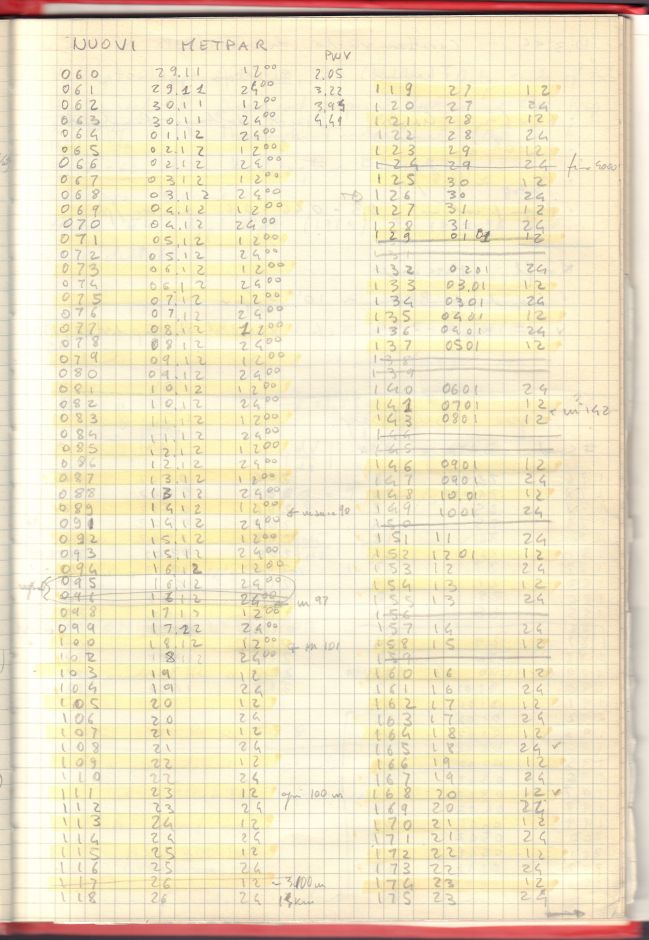 NUOVI METPAR
PWV
060 29.11 12⁰⁰ 2.05
061 29.11 24⁰⁰ 3.22
062 30.11 12⁰⁰ 3,94
063 30.11 24⁰⁰ 4,49
064 01.12 24⁰⁰
065 02.12 12⁰⁰
066 02.12 24⁰⁰
067 03.12 12⁰⁰
068 03.12 24⁰⁰
069 04.12 12⁰⁰
070 04.12 24⁰⁰
071 05.12 12⁰⁰
072 05.12 24⁰⁰
073 06.12 12⁰⁰
074 06.12 24⁰⁰
075 07.12 12⁰⁰
076 07.12 24⁰⁰
077 08.12 12⁰⁰
078 08.12 24⁰⁰
079 09.12 12⁰⁰
080 09.12 24⁰⁰
081 10.12 12⁰⁰
082 10.12 24⁰⁰
083 11.12 12⁰⁰
084 11.12 24⁰⁰
085 12.12 12⁰⁰
086 12.12 24⁰⁰
087 13.12 12⁰⁰
088 13.12 24⁰⁰
089 14.12 12⁰⁰
091 14.12 24⁰⁰
092 15.12 12⁰⁰
093 15.12 24⁰⁰
094 16.12 12⁰⁰
095 16.12 24⁰⁰
096 16.12 24⁰⁰ m 97
098 17.12 12⁰⁰
099 17.12 24⁰⁰
100 18.12 12⁰⁰ m 101
102 18.12 24⁰⁰
103 19 12
104 19 24
105 20 12
106 20 24
107 21 12
108 21 24
109 22 12
110 22 24
111 23 12 100 m
112 23 24
113 24 12
114 24 24
115 25 12
116 25 24
117 26 12 ~3,100 m
118 26 24
119 27 12
120 27 24
121 28 12
122 28 24
123 29 12
124 29 24
125 30 12
126 30 24
127 31 12
128 31 24
129 01 01 12
131
132 0201 24
133 03.01 12
134 0301 24
135 0401 12
136 0401 24
137 0501 12
138
139
140 0601 24
141 0701 12
143 0801 12 m° 142
144
145
146 0901 12
147 0901 24
148 10.01 12
149 1001 24
150
151 11 24
152 1201 12
153 12 24
154 13 12
155 13 24
156
157 14 24
158 15 12
159
160 16 12
161 16 24
162 17 12
163 17 24
164 18 12
165 18 24 ✓
166 19 12
167 19 24
168 20 12 ✓
169 20 24
170 21 12
171 21 24
172 22 12
173 22 24
174 23 12
175 23 24